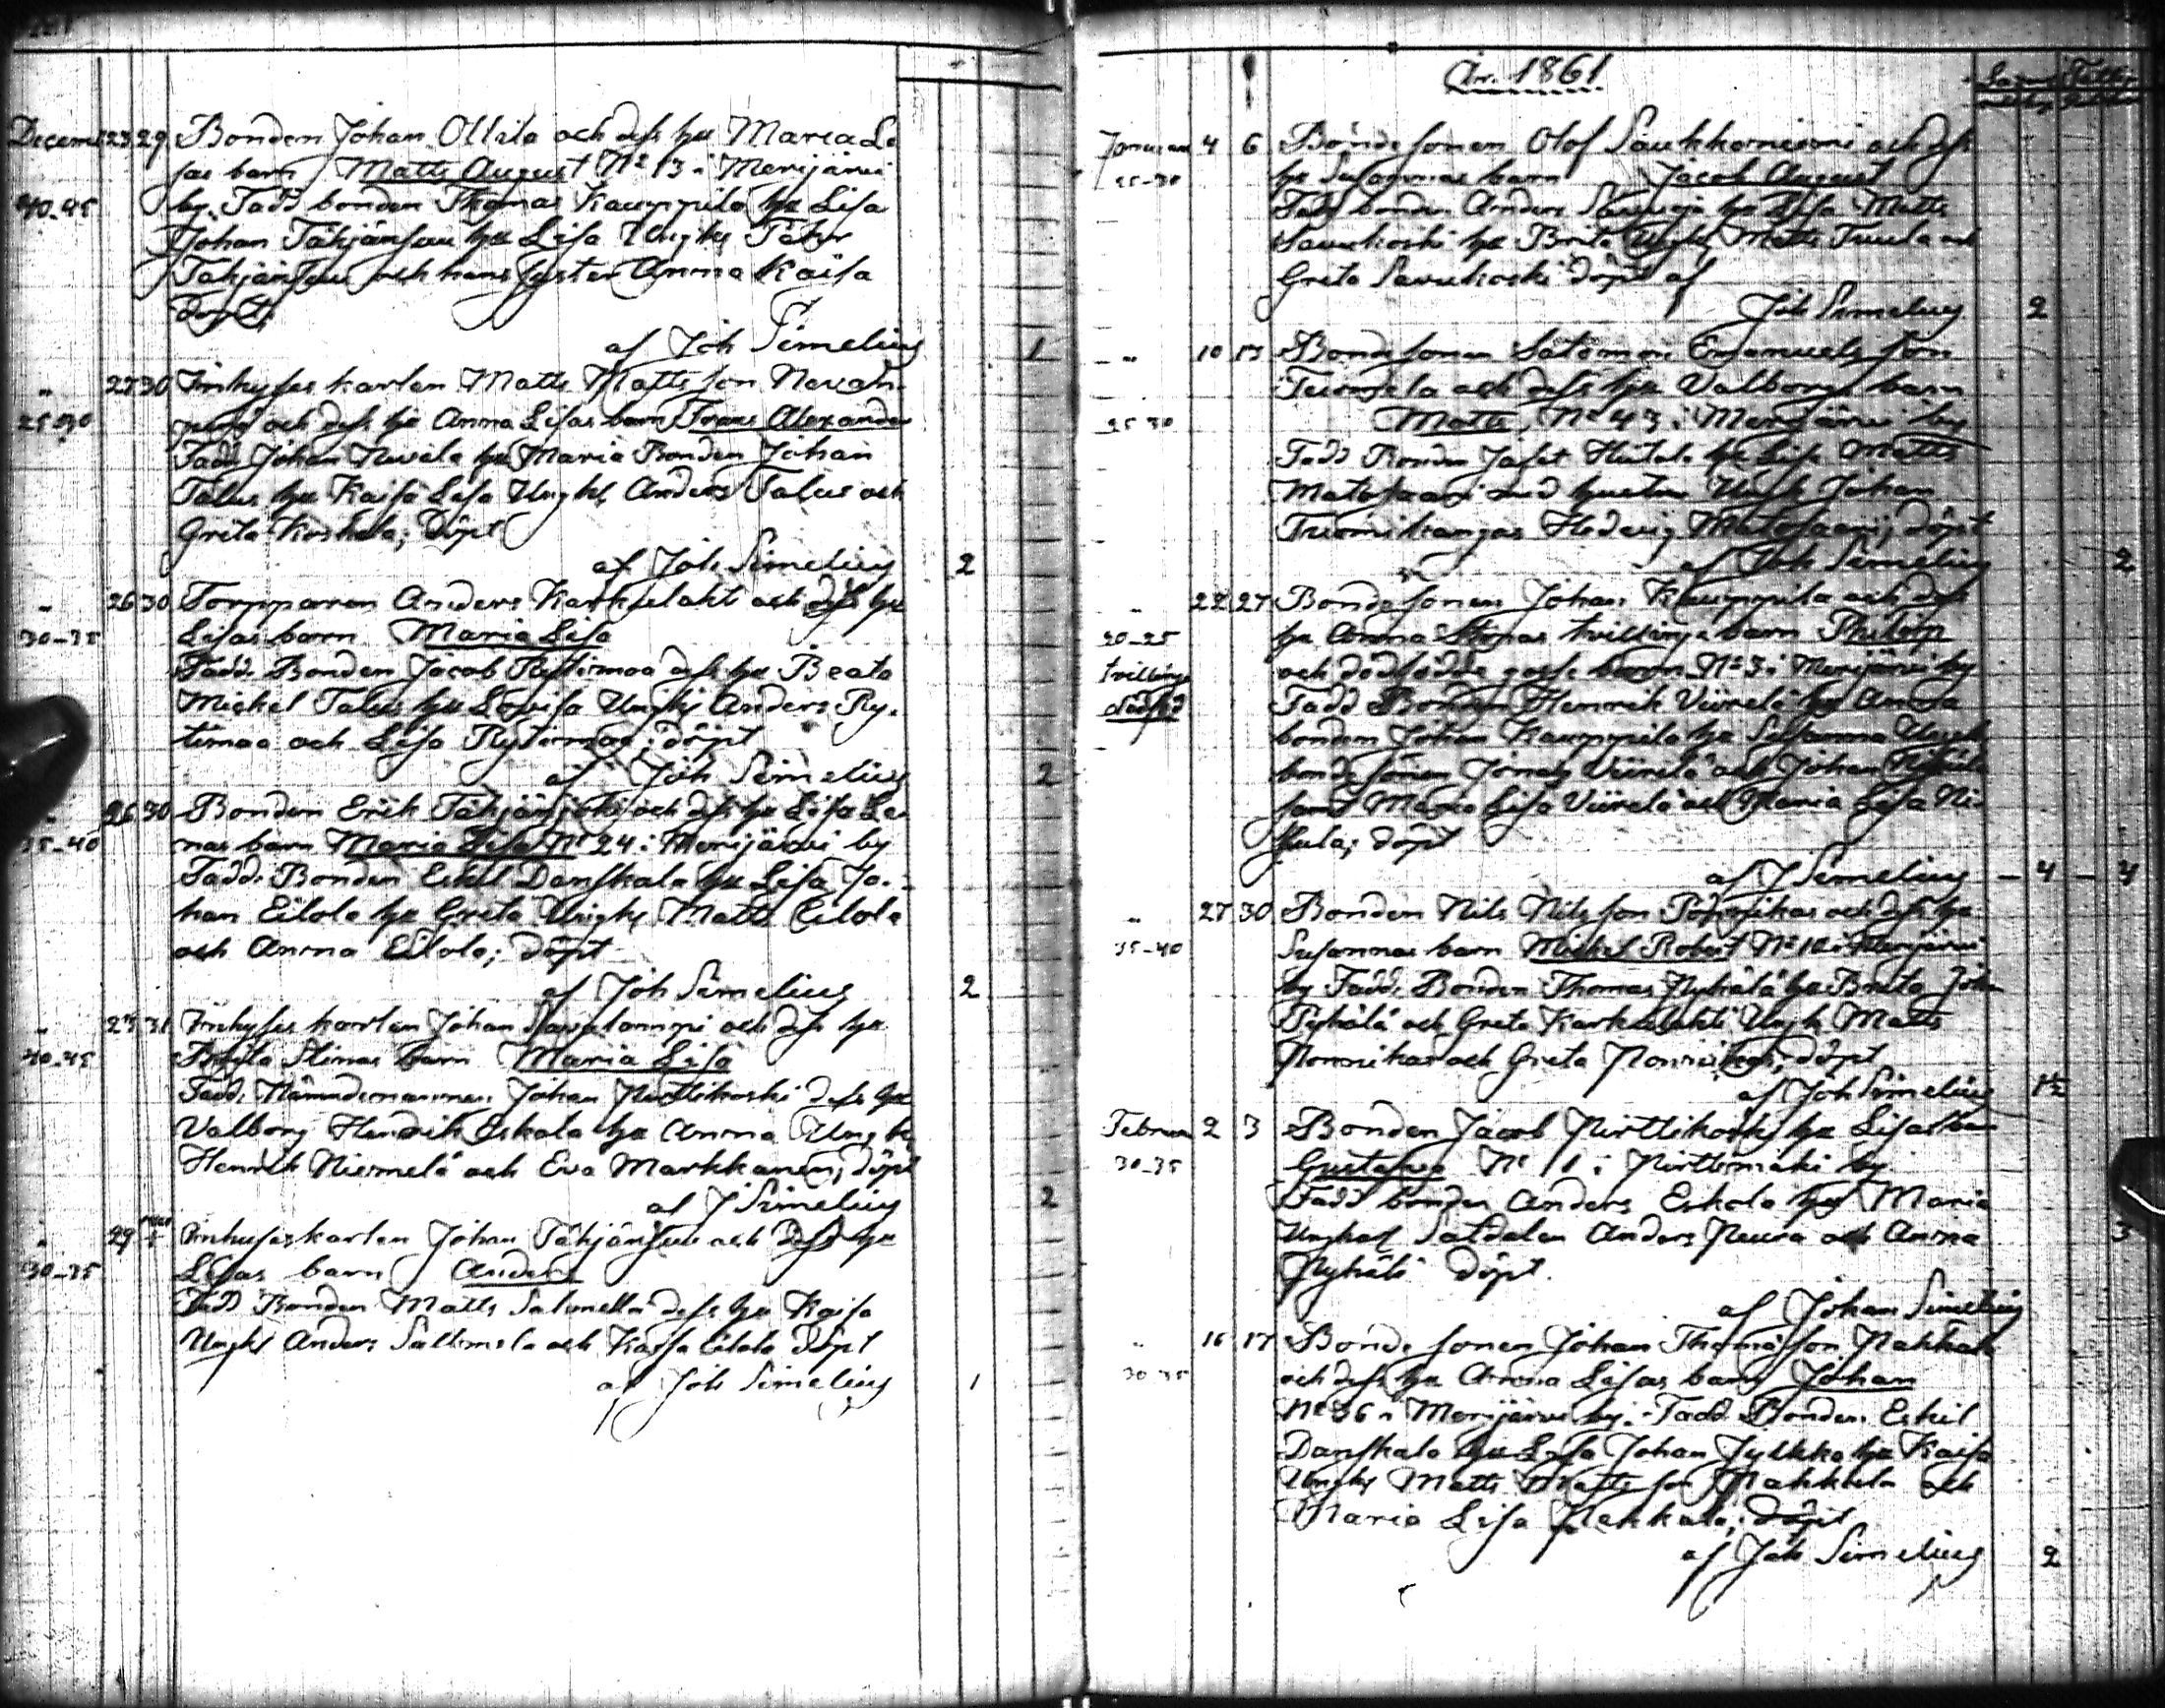 Decemb 23 29 Bonden Johan Ollila och dess hu Maria Li
sas barn Matts August No 13 i Merijärvi
40-45 by. Fadd bonden Thomas Kauppila hu Lisa
Johan Tähjänsuu hu Lisa Ungks Peter
Tähjänsuu och hans syster Anna Kaisa
Döpt
af Joh Simelius 1
" 27 30 Inhyses karlen Matts Mattsson Nevan
25-30 perä och dess hu Anna Lisas barn Frans Alexander
Fadd Johan Nevala hu Maria Bonden Johan
Talus hu Kaisa Lisa Ungks Anders Talus och
Greta Koskela; Döpt
af Joh Simelius 2
" 26 30 Torpparen Anders Karhulahti och dess hu
30-35 Lisas barn Maria Lisa
Fadd. Bonden Jacob Rytimaa dess hu Beata
Mickel Talus hu Lovisa Ungks Anders Ry-
timaa och Lisa Rytimaa; döpt
af Joh Simelius 2
" 26 30 Bonden Erik Tähjänjoki och dess hu Lisa Le-
35-40 nas barn Maria Lisa No 24 i Merijärvi by
Fadd. Bonden Eskil Danskala hu Lisa Jo-
han Eilola hu Greta Ungks Matts Eilola
och Anna Eilola; döpt
af Joh Simelius 2
" 27 31 Inhyses karlen Johan Savalampi och dess hu
40-45 Brita Stinas barn Maria Lisa
Fadd. Nämndemannen Johan Pirttikoski dess hu
Valborg Hendrik Eskola hu Anna Ungks
Henrik Niemelä och Eva Markkanen; döpt
af J Simelius 2
" 29 Inhyseskarlen Johan Tähjänsuu och dess hu
30-35 Lisas barn Anders
Fadd Bonden Matts Salmella dess hu Kaisa
Ungks Anders Salmela och Kaisa Eilola Döpt
af Joh Simelius 1
År. 1861
Januari 4 6 Bondesonen Olof Saukkoniemi och dess
25-30 hu Susannas barn Jacob August
Fadd bonden Anders hu Lisa Matts
Savukoski hu Brita Ungks Matts Tuula och
Greta Savukoski döpt af
Joh Simelius 2
" 10 13 Bondesonen Salomon Emanuels son
Tuomela och dess hu Valborgs barn
25-30 Matts, No 43 i Merijärvi by
Fadd Bonden Jafet Hietala hu Lisa Matts
Matosaari med hustru Ungk Johan
Tuomikangas Hedvig Matosaari; döpt
af Joh Simelius 2
" 22 27 Bondesonen Johan Kauppila och dess
20-25 hu Anna Stinas tvillinge barn Philip
tvilling och dödfödde gosse barn No 3 i Merijärvi by
dödfödd Fadd Bonden Henrik Viirelä hu Anna
bonden Johan Kauppila hu Susanna Ungk
bonde sonen Jonas Viirelä och Johan
samt Maria Lisa Viirelä och Maria Lisa Ni-
kula; döpt
af J Simelius 4 4
" 27 30 Bonden Nils Nilsson Poppikas och dess hu
35-40 Susannas barn Mickel Robert No 10 i Merijärvi
by Fadd. Bonden Thomas Pyhälä hu Brita Joh
Pyhälä och Greta Karhulahti Ungk Matts
och Greta döpt
af Joh Simelius 1½
Februari 2 3 Bonden Jacob Pirttikoski hu Lisas barn
30-35 Gustafva No 1 i Pirttimäki by
Fadd bonden Anders Eskola hu Maria
Ungkarl Soldaten Anders Neura och Anna 3
Pyhälä döpt.
af Johan Simelius
" 16 17 Bonde sonen Johan Thomasson Pakkala
30-35 och dess hu Anna Lisas barn Johan
No 36 i Merijärvi by. Fadd. Bonden Eskil
Danskala hu Lisa Johan Jylkkä hu Kaisa
Ungks Matts Matts son Pakkala och
Maria Lisa Pakkala; döpt
af Joh Simelius 2